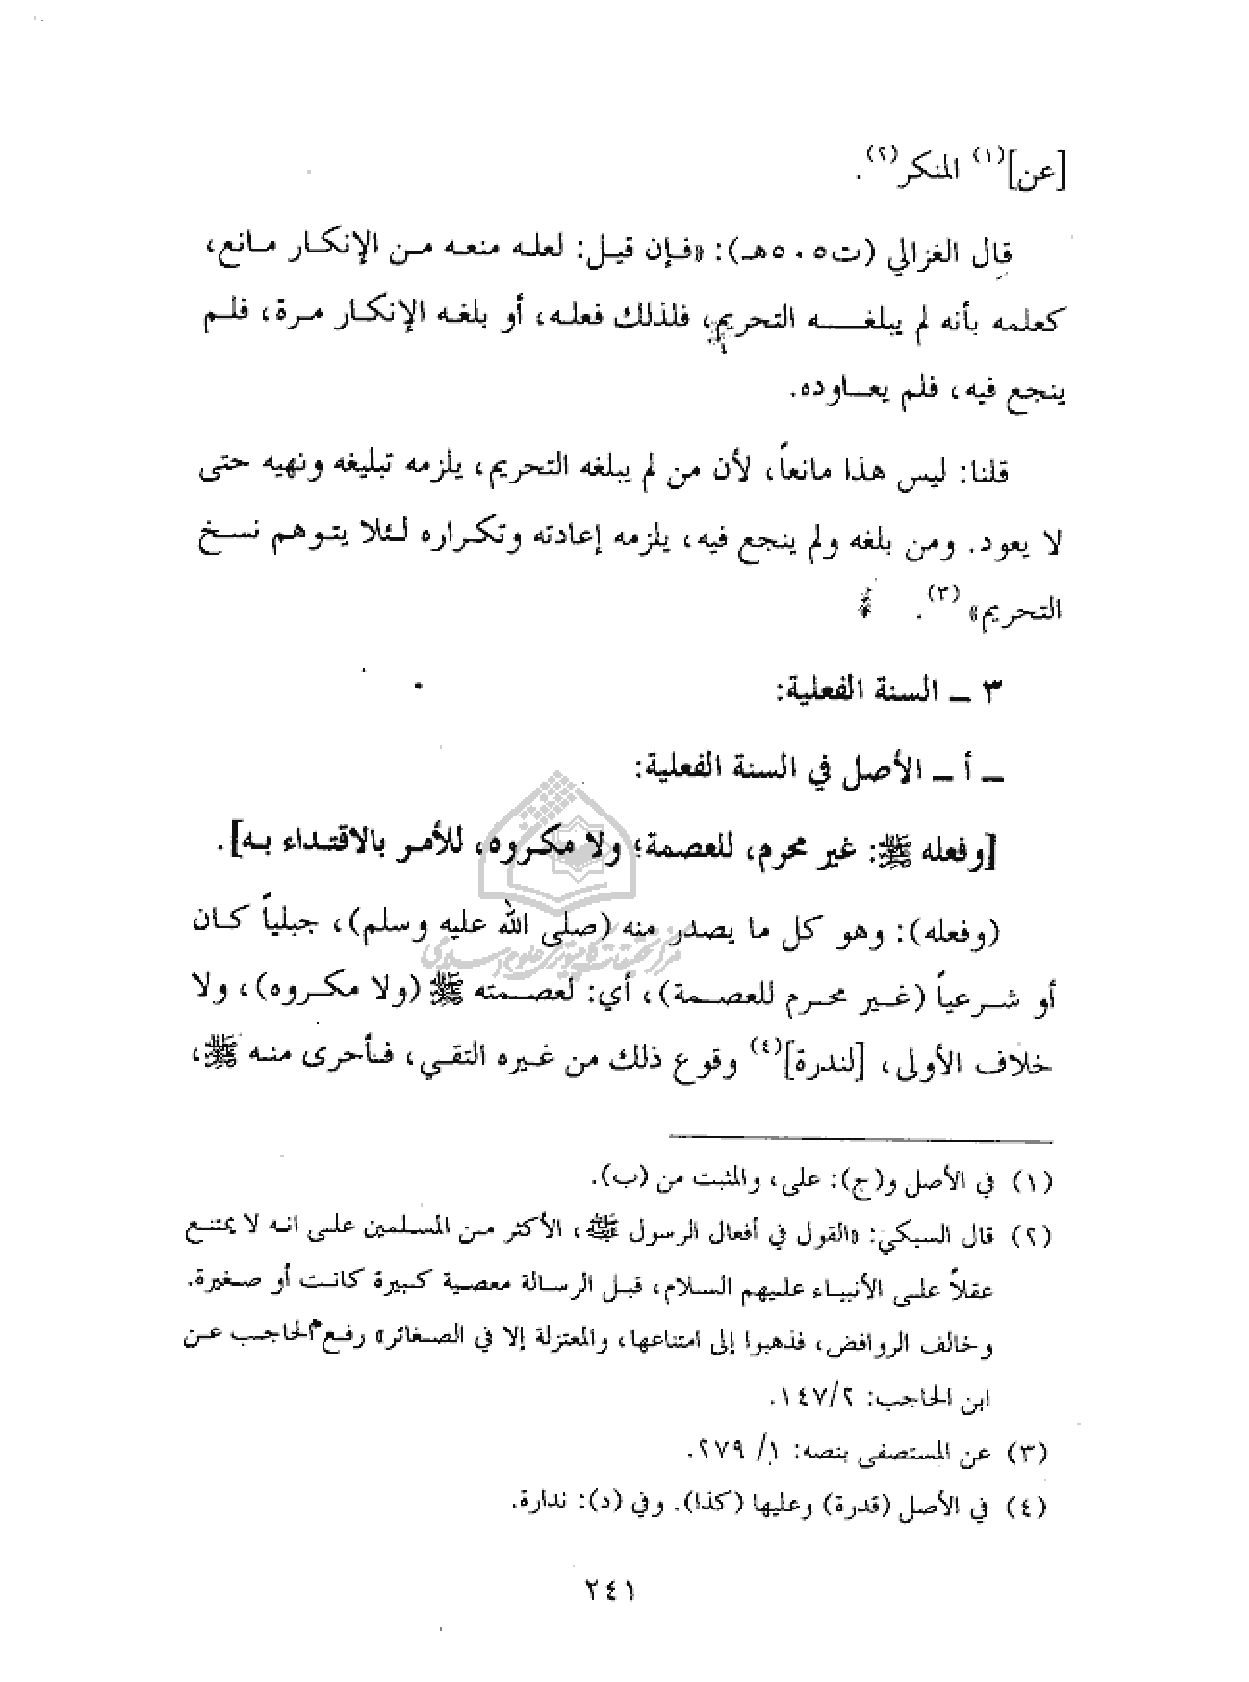 [عن](١) المنكر(٢).
قال الغزالي (ت٥٠٥هـ): «فإن قيل: لعله منعه من الإنكار مانع،
كعلمه بأنه لم يبلغه التحريم، فلذلك فعله، أو بلغه الإنكار مرة، فلم
ينجع فيه، فلم يعاوده.
قلنا: ليس هذا مانعاً، لأن من لم يبلغه التحريم، يلزمه تبليغه ونهيه حتى
لا يعود. ومن بلغه ولم ينجع فيه، يلزمه إعادته وتكراره لئلا يتوهم نسخ
التحريم» (٣).
٣ ـ السنة الفعلية:
ـ أ ـ الأصل في السنة الفعلية:
[وفعله ﷺ: غير محرم، للعصمة؛ ولا مكروه، للأمر بالاقتداء به].
(وفعله): وهو كل ما يصدر منه (صلى الله عليه وسلم)، جبلياً كان
أو شرعياً (غير محرم للعصمة)، أي: لعصمته ﷺ (ولا مكروه)، ولا
خلاف الأولى، [لندرة](٤) وقوع ذلك من غيره التقي، فأحرى منه ﷺ،
(١) في الأصل و(ج): على، والمثبت من (ب).
(٢) قال السبكي: «القول في أفعال الرسول ﷺ، الأكثر من المسلمين على انه لا يمتنع
عقلاً على الأنبياء عليهم السلام، قبل الرسالة معصية كبيرة كانت أو صغيرة.
وخالف الروافض، فذهبوا إلى امتناعها، والمعتزلة إلا في الصغائر» رفع الحاجب عن
ابن الحاجب: ١٤٧/٢.
(٣) عن المستصفى بنصه: ١/ ٢٧٩.
(٤) في الأصل (قدرة) وعليها (كذا). وفي (د): ندارة.
٢٤١
مركز تحقيقات كامپيوتری علوم اسلامی